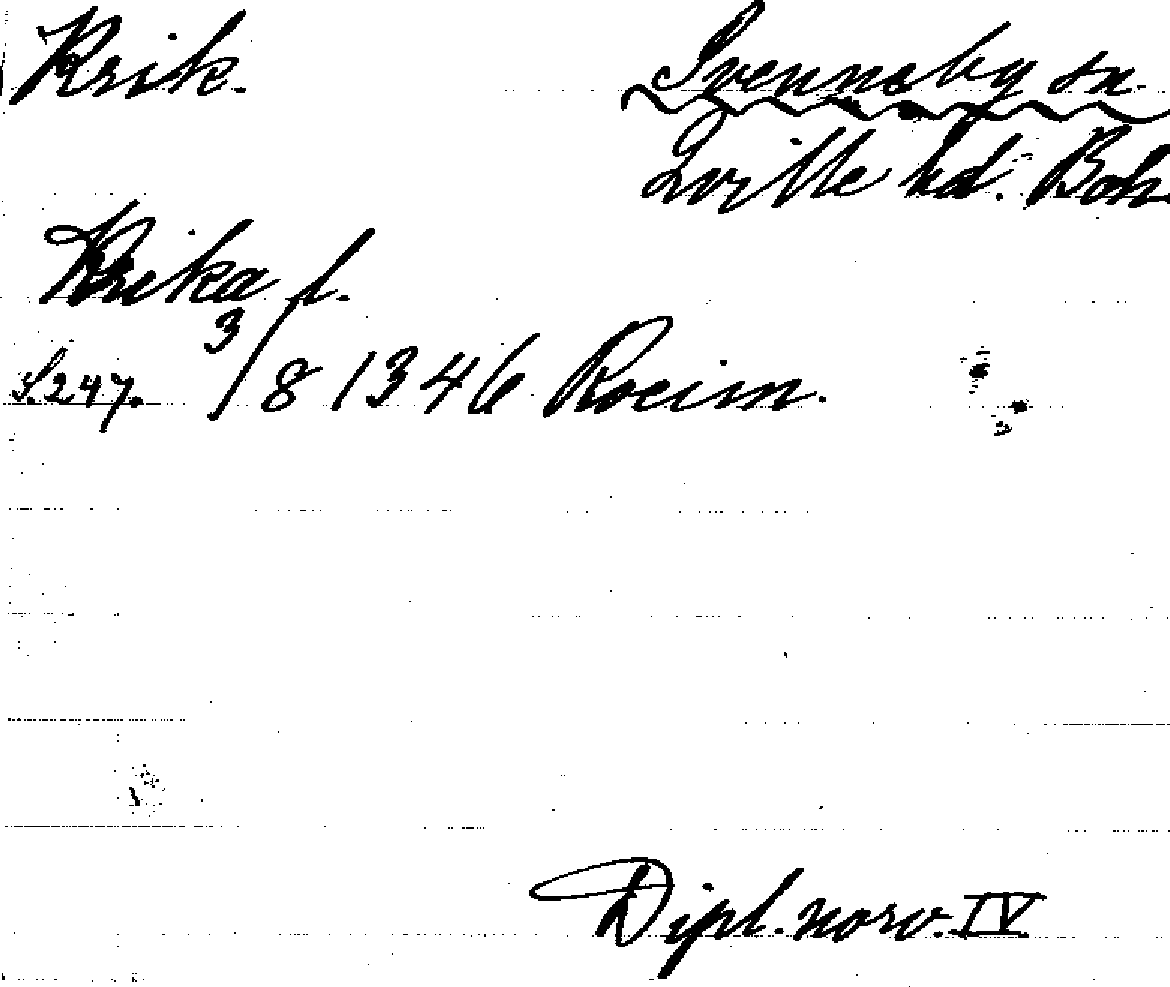 Krik.
Svenneby sn.
Qville hd. Boh.
Krika f.
S. 247. 3/8 1346 Roeim.
Dipl. norv. IV